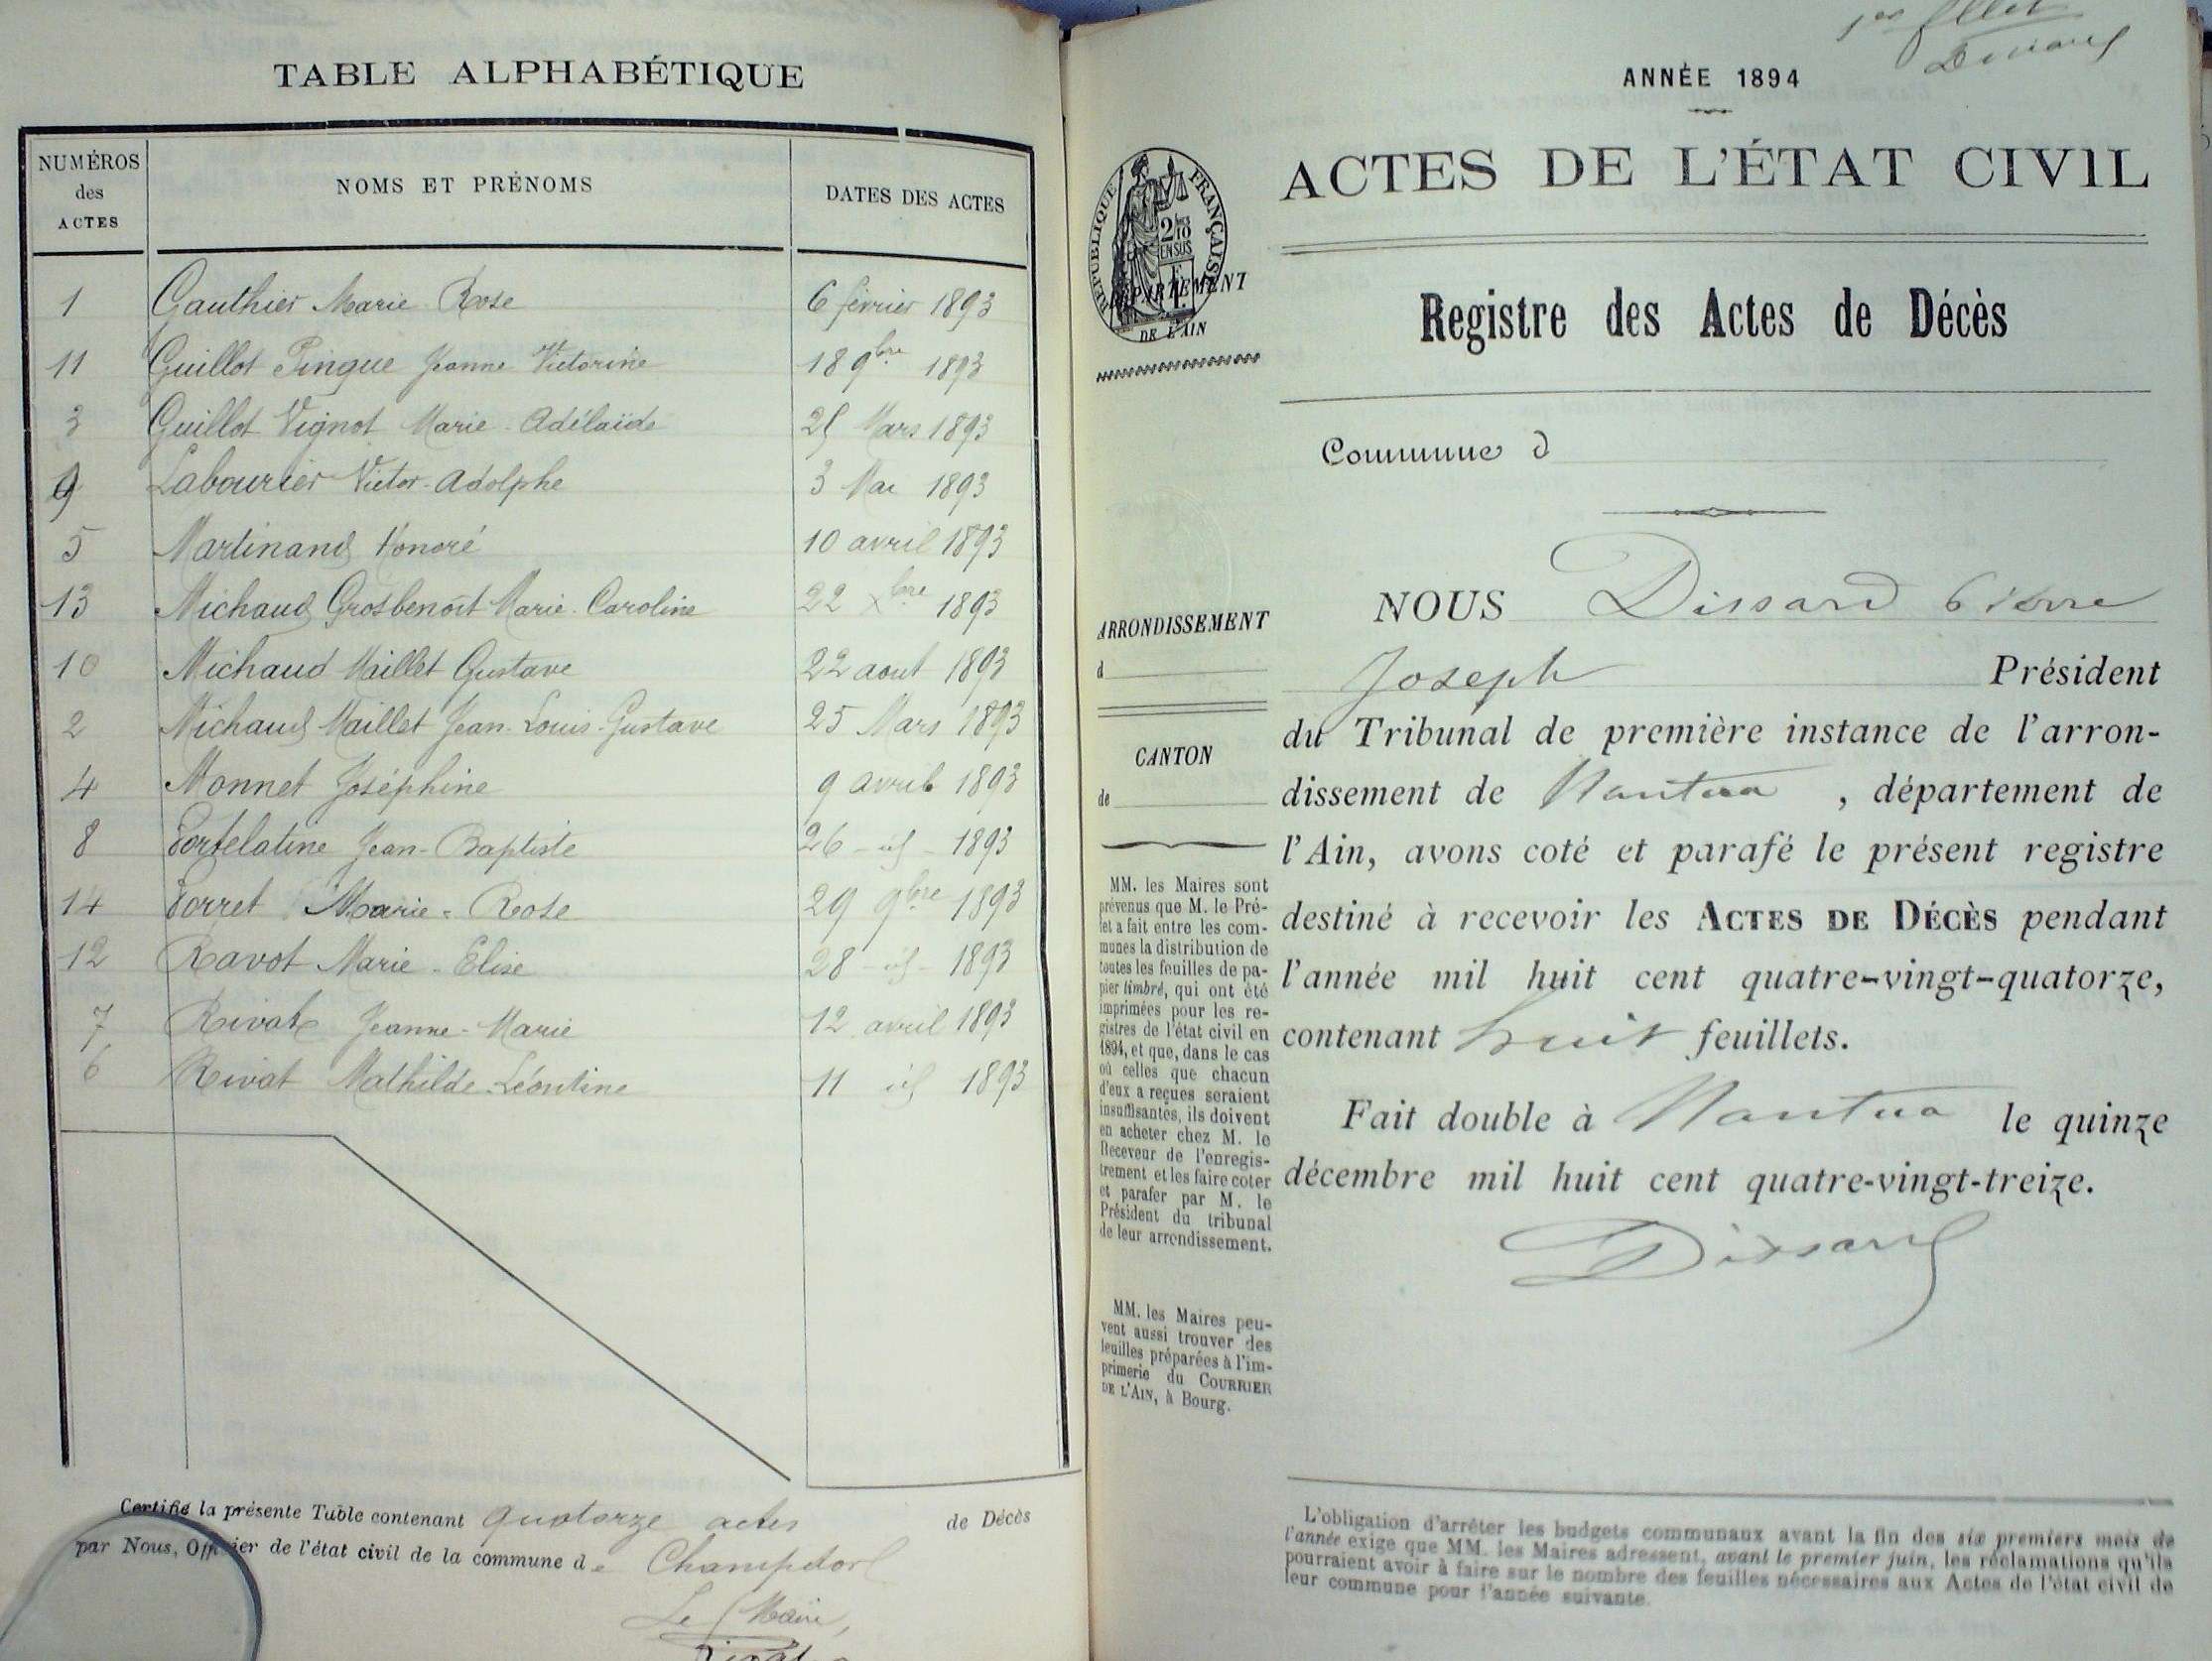 TABLE ALPHABÉTIQUE
NUMÉROS
des
ACTES
NOMS ET PRÉNOMS
DATES DES ACTES
1 Gauthier Marie Rose 6 février 1893
11 Guillot Pingue Jeanne Victorine 18 9bre 1893
3 Guillot Vignot Marie-Adélaïde 25 Mars 1893
9 Labourier Victor-Adolphe 3 Mai 1893
5 Martinand Honoré 10 avril 1893
13 Michaud Grosbenoit Marie-Caroline 22 Xbre 1893
10 Michaud Maillet Gustave 22 aout 1893
2 Michaud Maillet Jean-Louis-Gustave 25 Mars 1893
4 Monnet Joséphine 9 avril 1893
8 Portelatine Jean-Baptiste 26 - id - 1893
14 Porret Marie-Rose 29 9bre 1893
12 Ravot Marie-Elise 28 - id - 1893
7 Rivat Jeanne-Marie 12 avril 1893
6 Rivat Mathilde-Léontine 11 id 1893
Certifié la présente Table contenant quatorze actes de Décès
par Nous, Officier de l'état civil de la commune de Champdor
Le Maire,
1er fllet
Dissard
ANNÉE 1894
ACTES DE L'ÉTAT CIVIL
RÉPUBLIQUE FRANÇAISE
2/10
EN SUS
DÉPARTEMENT
DE L'AIN
Registre des Actes de Décès
Commune d
ARRONDISSEMENT
d
CANTON
de
MM. les Maires sont
prévenus que M. le Pré-
fet a fait entre les com-
munes la distribution de
toutes les feuilles de pa-
pier timbré, qui ont été
imprimées pour les re-
gistres de l'état civil en
1894, et que, dans le cas
où celles que chacun
d'eux a reçues seraient
insuffisantes, ils doivent
en acheter chez M. le
Receveur de l'enregis-
trement et les faire coter
et parafer par M. le
Président du tribunal
de leur arrondissement.
MM. les Maires peu-
vent aussi trouver des
feuilles préparées à l'im-
primerie du COURRIER
DE L'AIN, à Bourg.
NOUS Dissard Pierre
Joseph Président
du Tribunal de première instance de l'arron-
dissement de Nantua, département de
l'Ain, avons coté et parafé le présent registre
destiné à recevoir les ACTES DE DÉCÈS pendant
l'année mil huit cent quatre-vingt-quatorze,
contenant huit feuillets.
Fait double à Nantua le quinze
décembre mil huit cent quatre-vingt-treize.
Dissard
L'obligation d'arrêter les budgets communaux avant la fin des six premiers mois de
l'année exige que MM. les Maires adressent, avant le premier juin, les réclamations qu'ils
pourraient avoir à faire sur le nombre des feuilles nécessaires aux Actes de l'état civil de
leur commune pour l'année suivante.